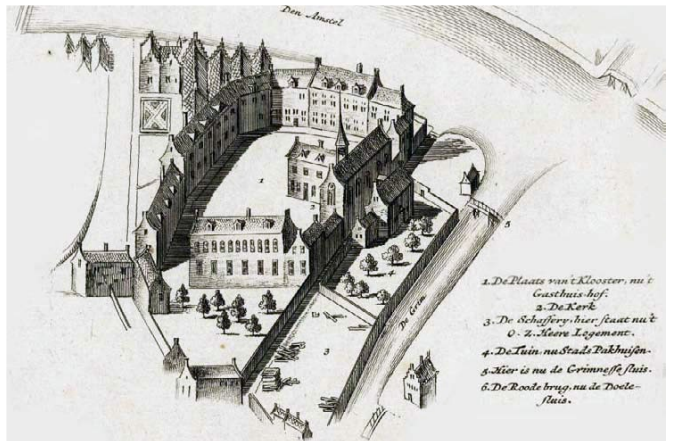 Den Amstel
1
2
5
De Grim
3
1. De Plaats van't Klooster, nu't
Gasthuis-hof.
2. De Kerk
3. De Schaffery, hier staat nu't
O. Z. Heere Logement.
4. De Tuin, nu Stads Pakhuisen.
5. Hier is nu de Grimnesse sluis.
6. De Roode brug, nu de Doele-
sluis.